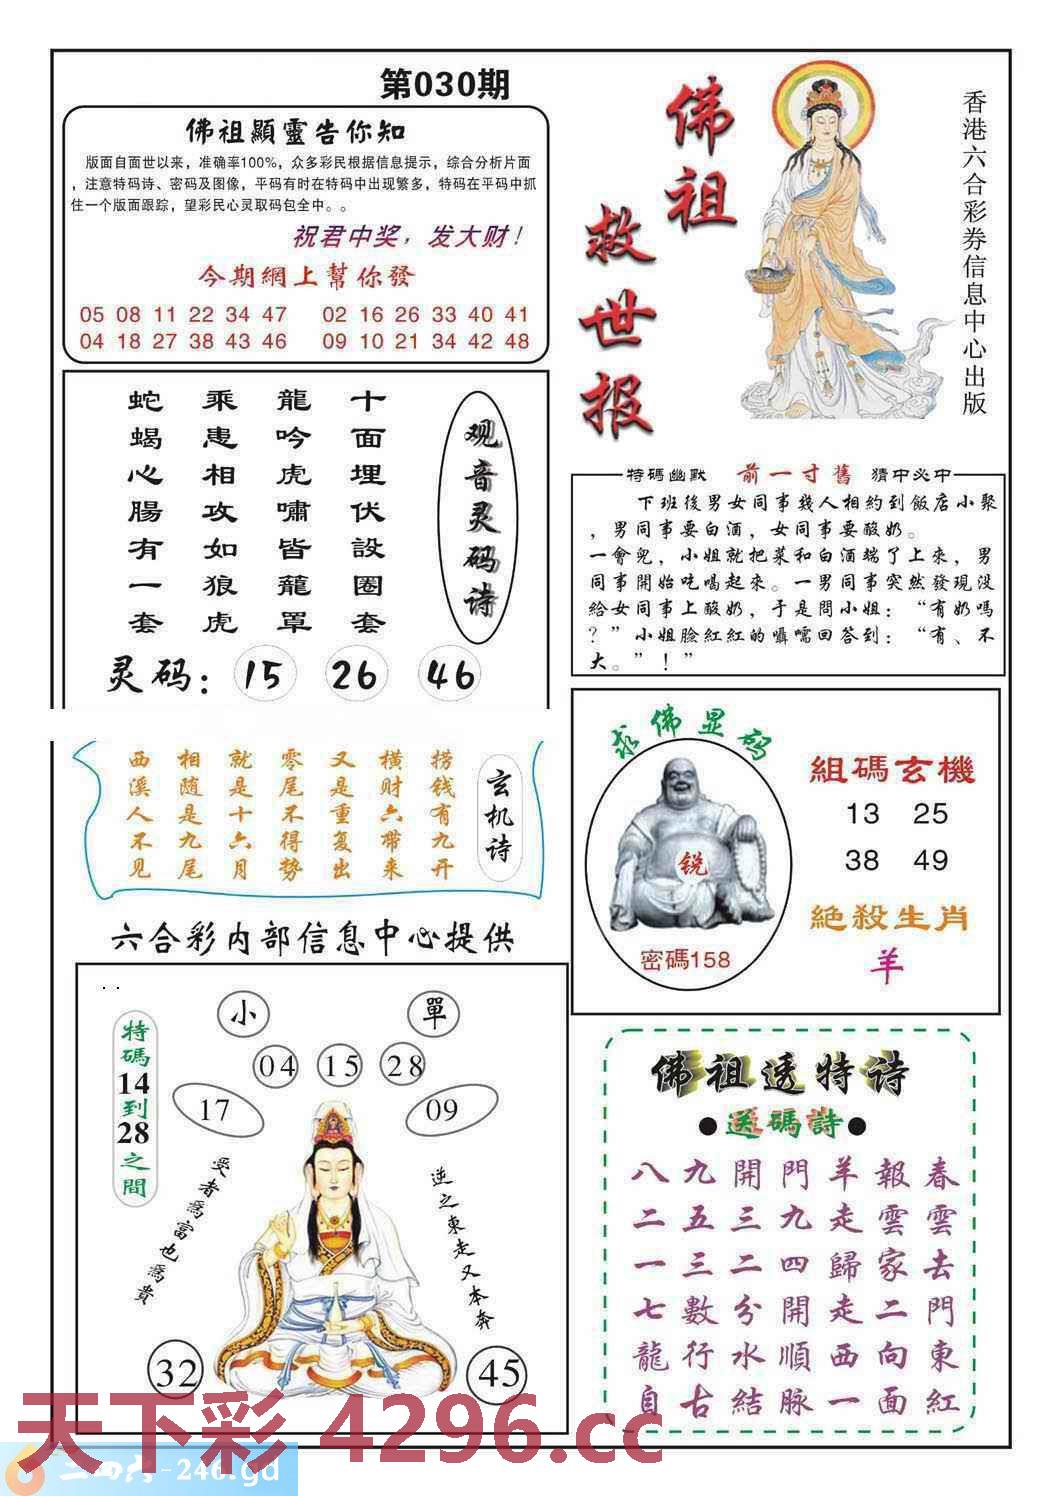 第030期
佛祖顯靈告你知
版面自面世以来，准确率100%，众多彩民根据信息提示，综合分析片面
，注意特码诗、密码及图像，平码有时在特码中出现繁多，特码在平码中抓
住一个版面跟踪，望彩民心灵取码包全中。。
祝君中奖，发大财！
今期網上幫你發
05 08 11 22 34 47 02 16 26 33 40 41
04 18 27 38 43 46 09 10 21 34 42 48
佛祖
救世报
香港六合彩券信息中心出版
十面埋伏設圈套
龍吟虎嘯皆龍罩
乘患相攻如狼虎
蛇蝎心腸有一套
观音灵码诗
灵码：15 26 46
特碼幽默 前一寸舊 猜中必中
下班後男女同事幾人相約到飯店小聚
，男同事要白酒，女同事要酸奶。
一會兒，小姐就把菜和白酒端了上來，男
同事開始吃喝起來。一男同事突然發現没
給女同事上酸奶，于是問小姐：“有奶嗎
？”小姐臉紅紅的囁嚅回答到：“有、不
大。”！”
玄机诗
捞钱有九开
横财六帶来
又是重复出
零尾不得势
就是十六月
相随是九尾
西溪人不见
求佛显码
锐
密碼158
組碼玄機
13 25
38 49
絶殺生肖
羊
六合彩内部信息中心提供
小
單
04
15
28
17
09
特碼14到28之間
受者爲富也爲貴
逆之東走又本奔
32
45
佛祖透特诗
●送碼詩●
八九開門羊報春
二五三九走雲雲
一三二四歸家去
七數分開走二門
龍行水順西向東
自古結脉一面紅
天下彩 4296.cc
二四六-246.gd